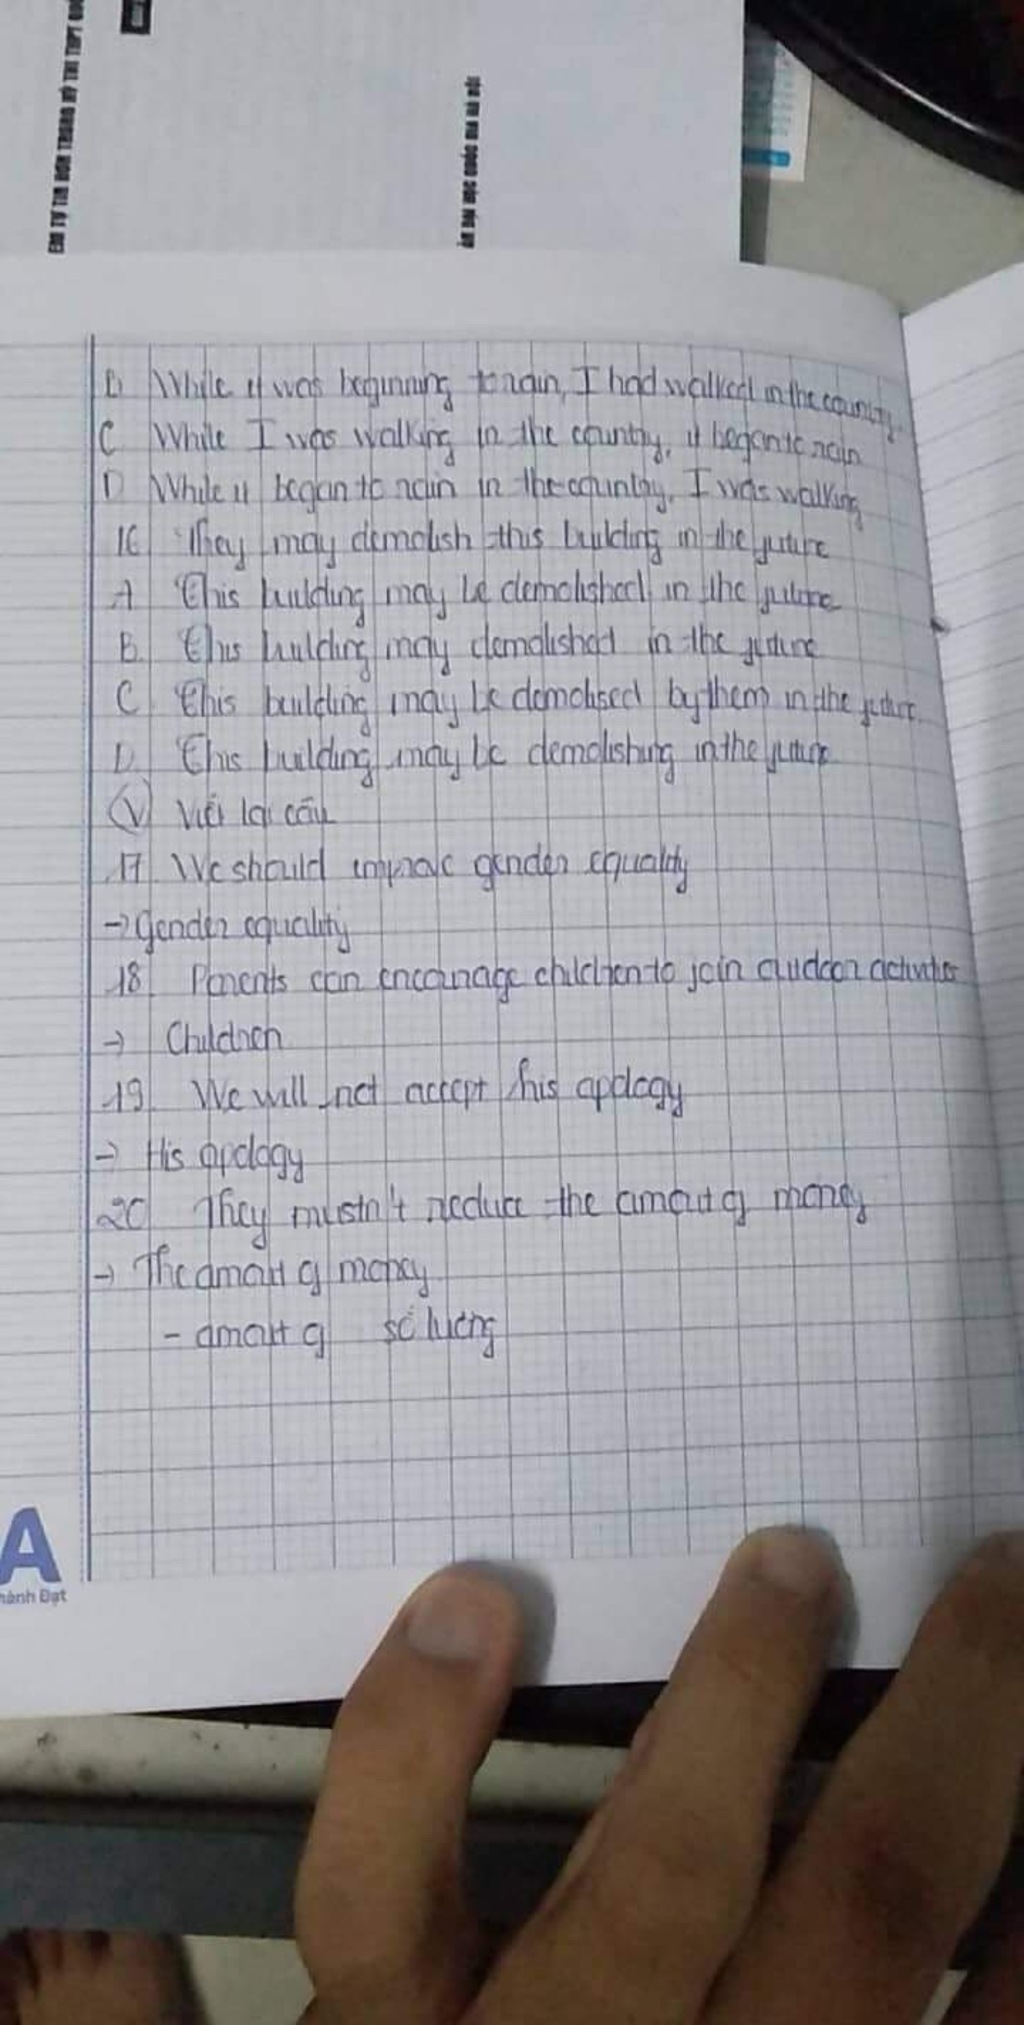 EM TỰ TIN HƠN TRONG KỲ THI THPT
ĐẠI HỌC QUỐC GIA HÀ NỘI
B While it was beginning to rain, I had walked in the country
C While I was walking in the country, it began to rain
D While it began to rain in the country, I was walking
16 They may demolish this building in the future
A This building may be demolished in the future
B. This building may demolished in the future
C This building may be demolised by them in the future
D. This building may be demolishing in the future
(V) Viết lại câu
17. We should improve gender equality
→ Gender equality
18 Parents can encourage children to join outdoor activities
→ Children
19. We will not accept his apology
→ His apology
20 They mustn't reduce the amout of money
→ The amout of money
- amout of số lượng
A
hành Đạt